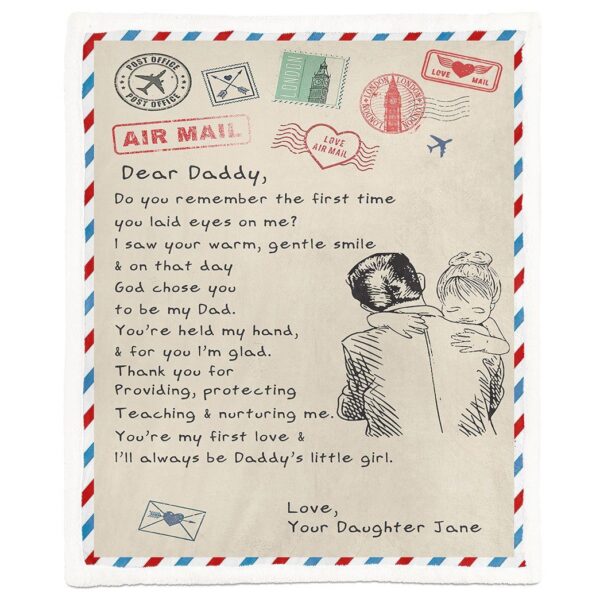 POST OFFICE
POST OFFICE
LONDON
LONDON LONDON
LONDON
LOVE MAIL
AIR MAIL
LOVE
AIR MAIL
Dear Daddy,
Do you remember the first time
you laid eyes on me?
I saw your warm, gentle smile
& on that day
God chose you
to be my Dad.
You're held my hand,
& for you I'm glad.
Thank you for
Providing, protecting
Teaching & nurturing me.
You're my first love &
I'll always be Daddy's little girl.
Love,
Your Daughter Jane